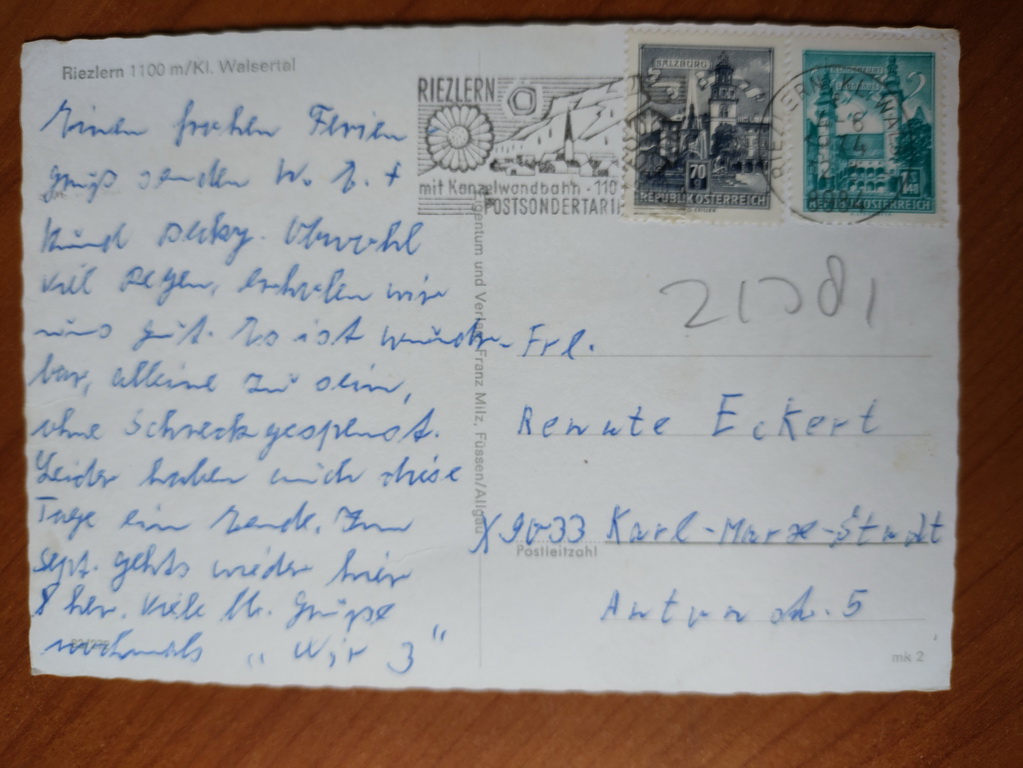 Riezlern 1100 m/Kl. Walsertal
Einen frohen Ferien
gruß senden W. B. +
Hund Decky. Obwohl
viel Regen, erholen wir
uns gut. Es ist wunder-
bar, alleine zu sein,
ohne Schreckgespenst.
Leider haben auch diese
Tage ein Ende. Im
Sept. gehts wieder hier
her. Viele lb. Grüße
nochmals „Wir 3"
Eigentum und Verlag Franz Milz, Füssen/Allgäu
RIEZLERN
mit Kanzelwandbahn · 110
POSTSONDERTARIF
SALZBURG
70
REPUBLIK ÖSTERREICH
REPUBLIK ÖSTERREICH
Frl.
Renate Eckert
X 9033 Karl-Marx-Stadt
Postleitzahl
5
mk 2